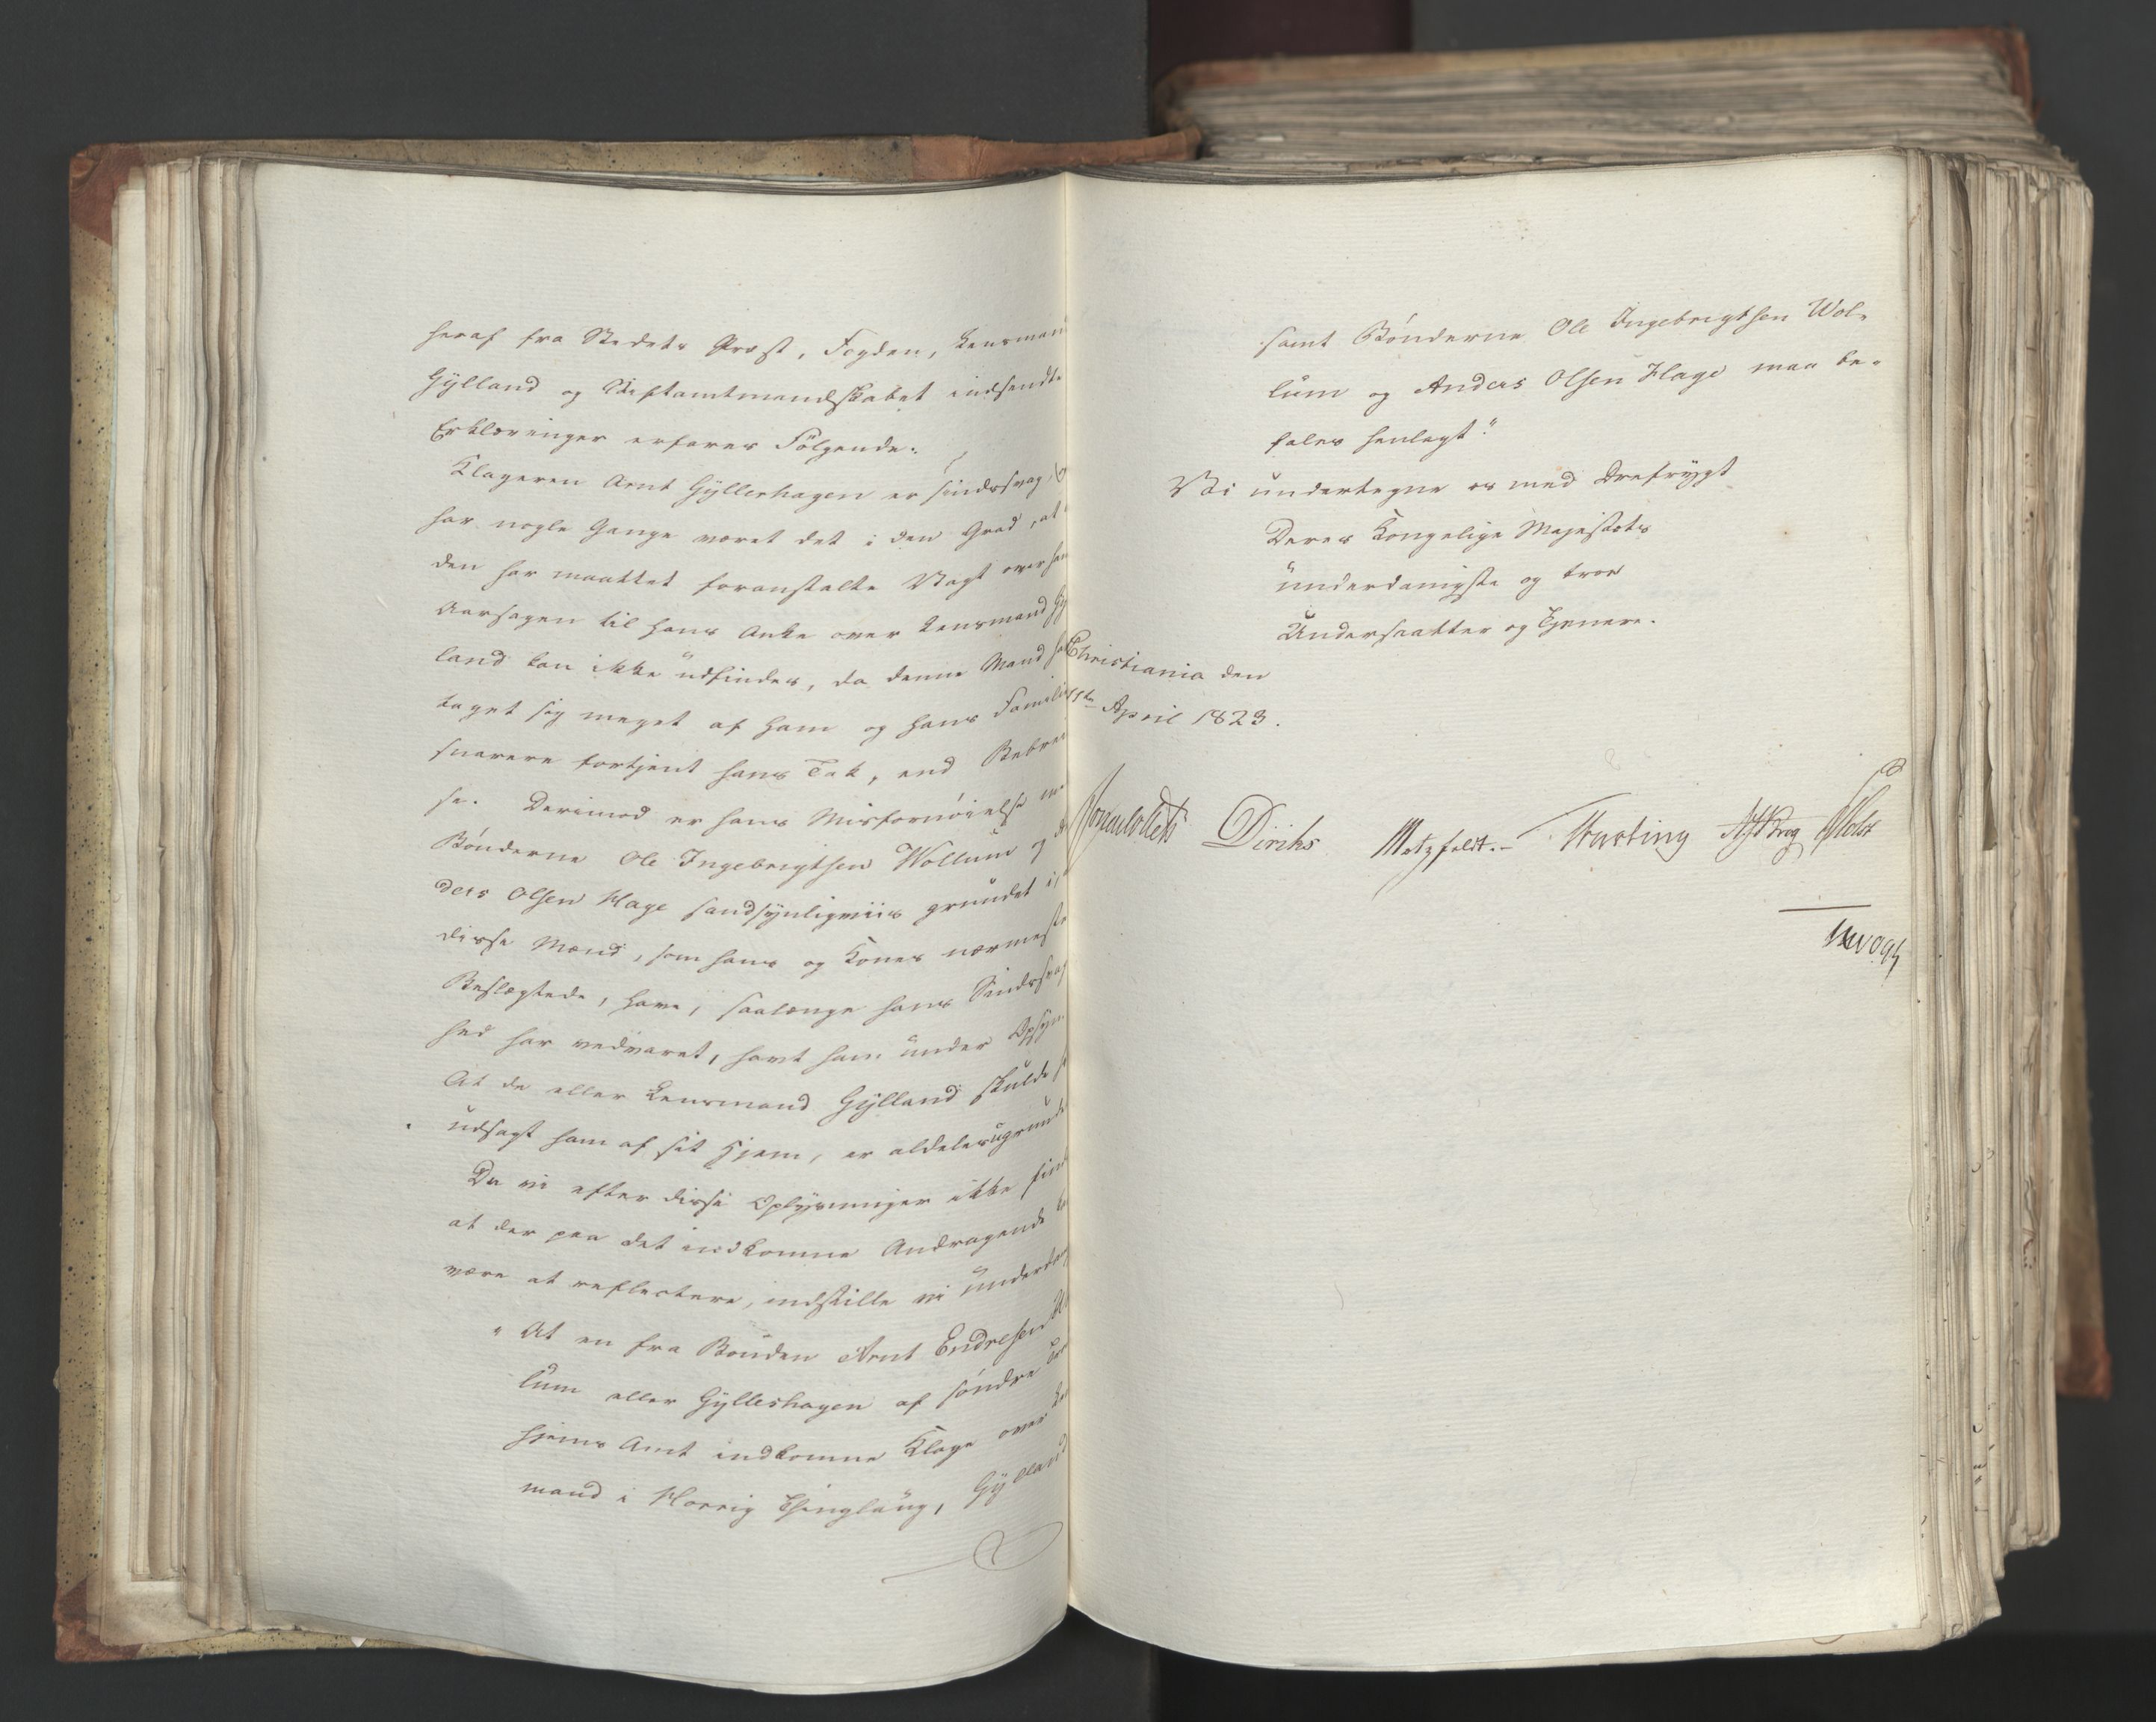 heraf fra Stedets Præst, Fogden, Lensmand
Gÿlland og Stiftamtmandskabet indsendte
Erklæringer erfares Følgende:
Klageren Arnt Gÿlleshagen er sindssvag,
har nogle Gange været det i den Grad, at
den har maattet foranstalte Vagt over ham
Aarsagen til hans Anke over Lensmand Gÿ
land kan ikke udfindes, da denne Mand har
taget sig meget af ham og hans Familie
snarere fortjent hans Tak, end Bebrei
se. Derimod er hans Misfornøielse med
Bønderne Ole Ingebrigtsen Wollum og
ders Olsen Hage sandsÿnligviis grundet i,
disse Mænd, som hans og Kones nærmeste
Beslægtede, have, saalænge hans Sindssvag
hed har vedvaret, havt ham under Opsÿn.
At de eller Lensmand Gÿlland skulde
udsagt ham af sit Hjem, er aldeles ugrundet
Da vi efter disse Oplysninger ikke find
at der paa det indkomne Andragende
være at reflectere, indstille vi underda
"At en fra Bonden Arnt Endresen Wol
lum eller Gÿlleshagen af søndre
hjems Amt indkomne Klage over Lens
mand i Horrig Thinglaug, Gÿlland
samt Bønderne Ole Ingebrigtsen Wol-
lum og Anders Olsen Hage maa be-
fales henlagt."
Vi undertegne os med Ærefrÿgt
Deres Kongelige Majestæts
underdanigste og troe
Undersaatter og Tjenere.
Christiania den
April 1823.
Diriks Motzfeldt. Krog